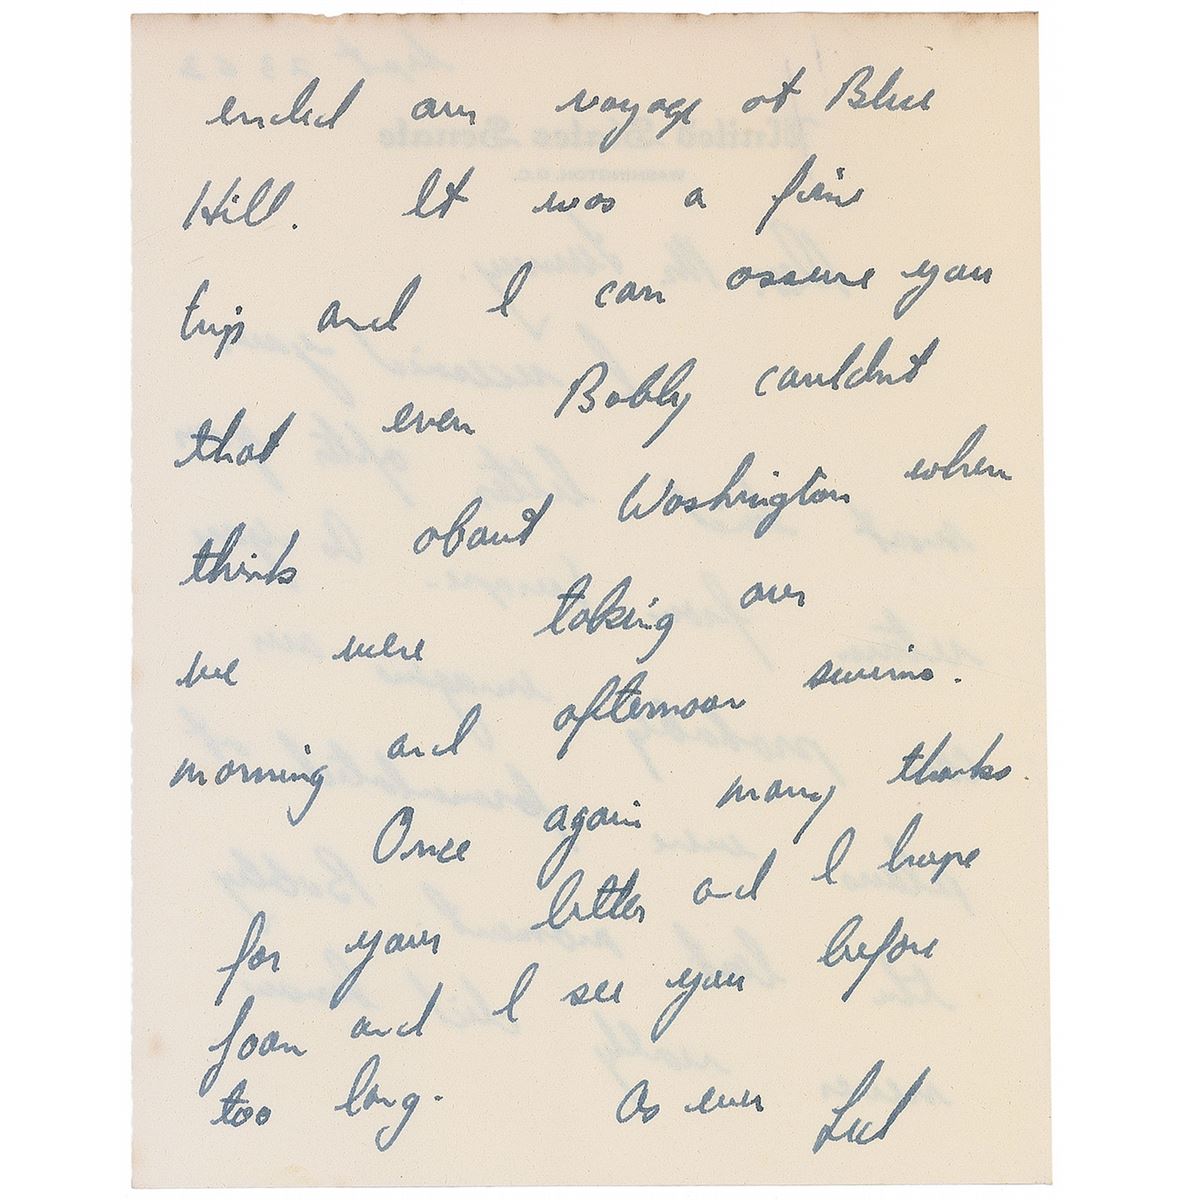 ended our voyage at Blue
Hill. It was a fine
trip and I can assure you
that even Bobby couldn't
think about Washington when
we were taking our
morning and afternoon swims.
Once again many thanks
for your letter and I hope
Joan and I see you before
too long. As ever Ted